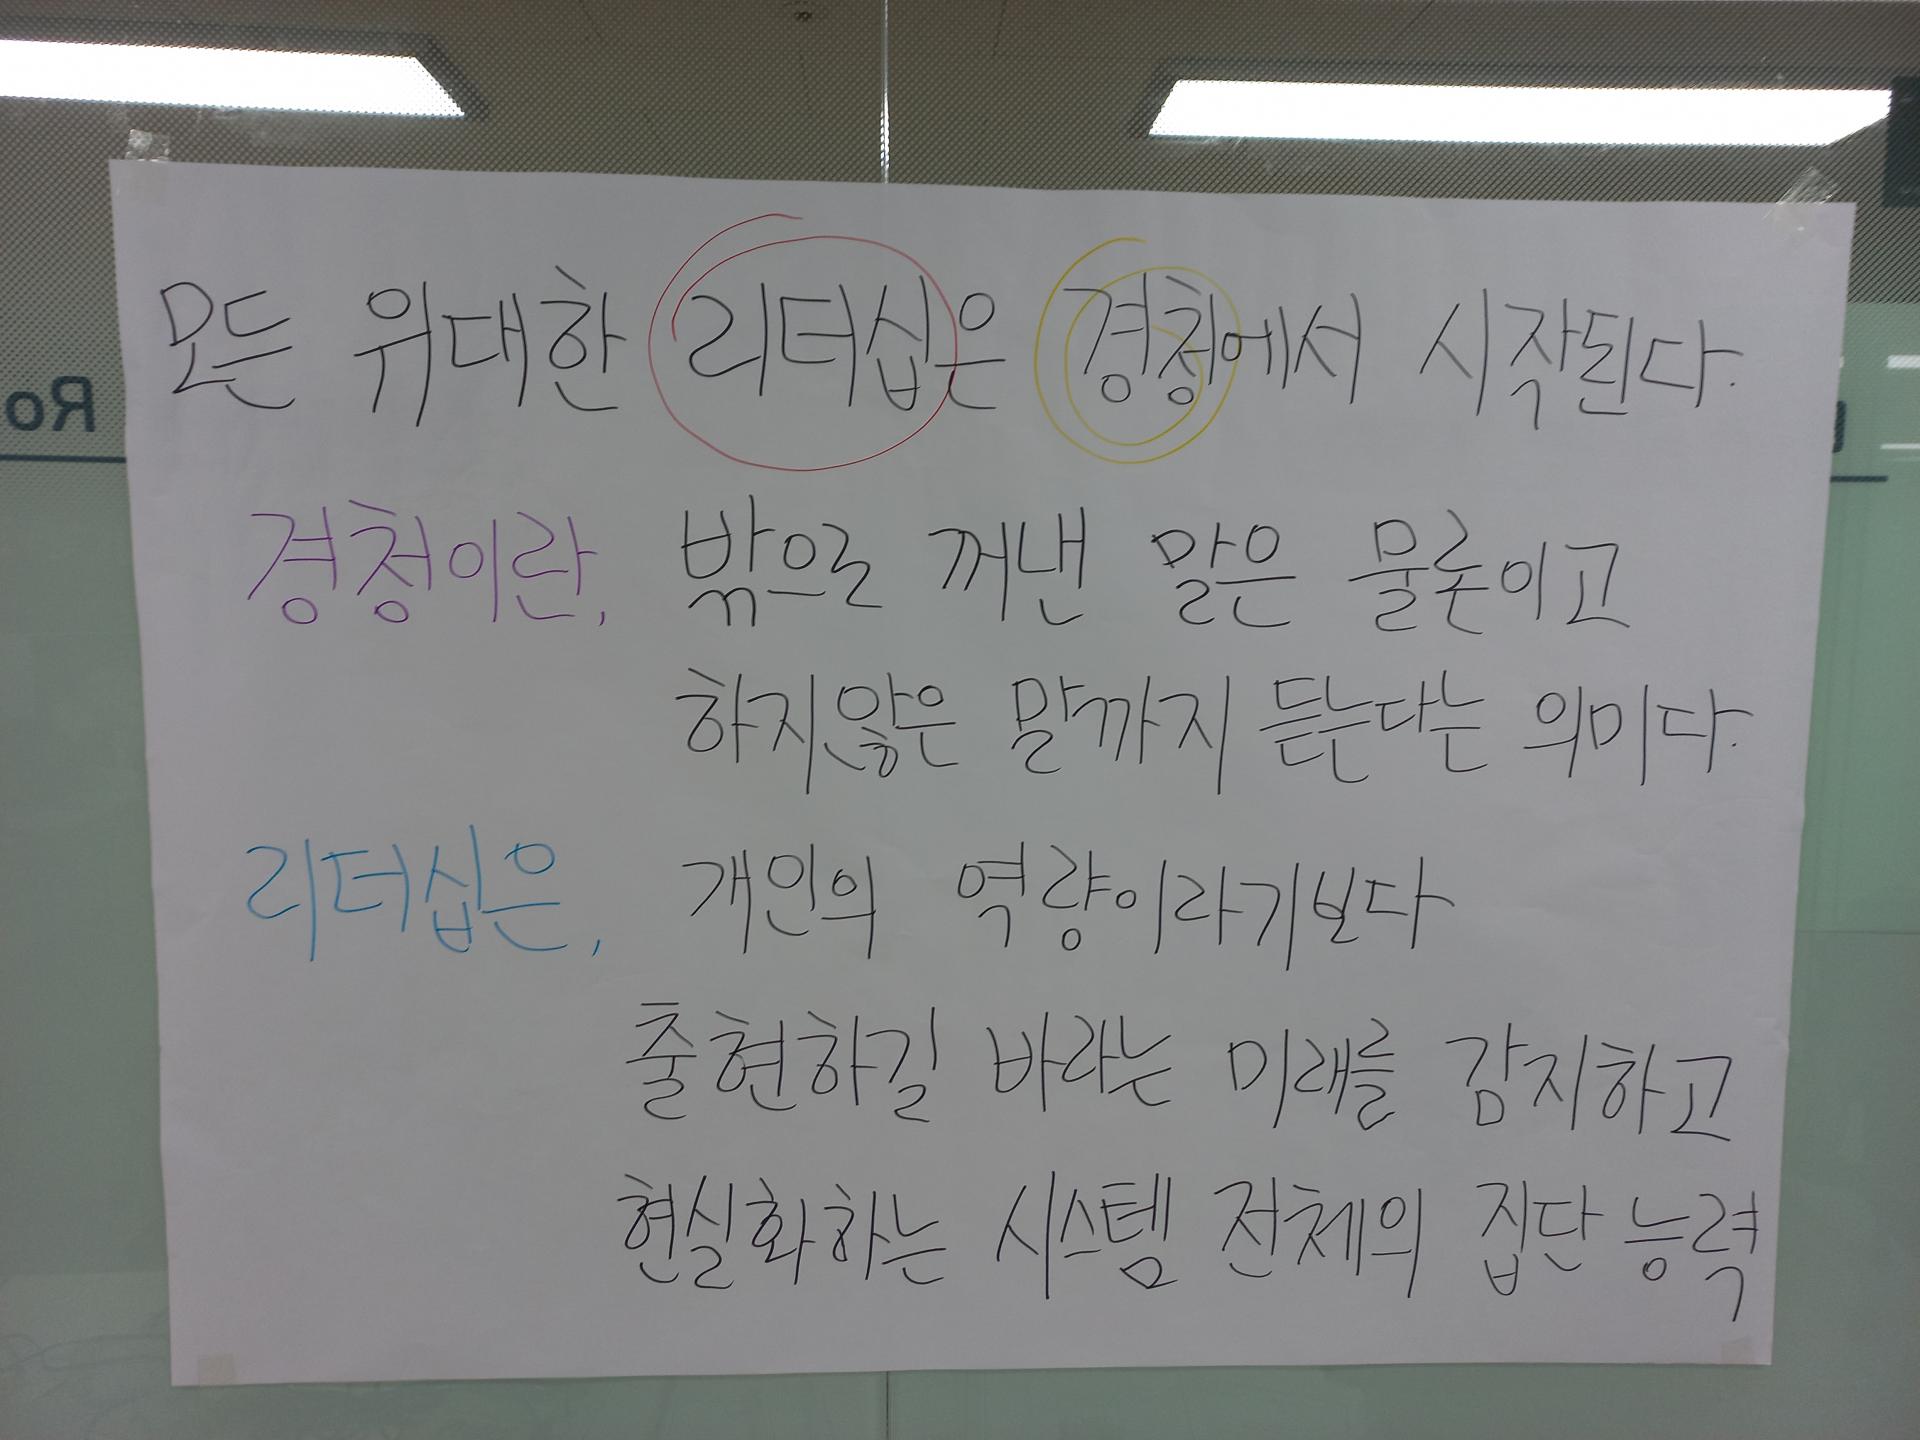 모든 위대한 리더십은 경청에서 시작된다.
경청이란, 밖으로 꺼낸 말은 물론이고
하지않은 말까지 듣는다는 의미다.
리더십은, 개인의 역량이라기보다
출현하길 바라는 미래를 감지하고
현실화하는 시스템 전체의 집단 능력
Ro